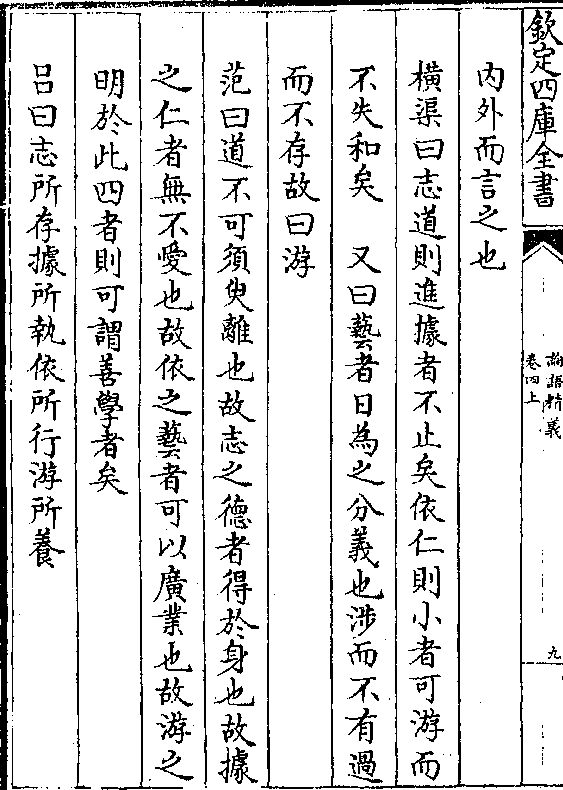 欽定四庫全書
論語精義
卷四上
九
內外而言之也
橫渠曰志道則進據者不止矣依仁則小者可游而
不失和矣　又曰藝者日為之分義也涉而不有過
而不存故曰游
范曰道不可須臾離也故志之德者得於身也故據
之仁者無不愛也故依之藝者可以廣業也故游之
明於此四者則可謂善學者矣
呂曰志所存據所執依所行游所養